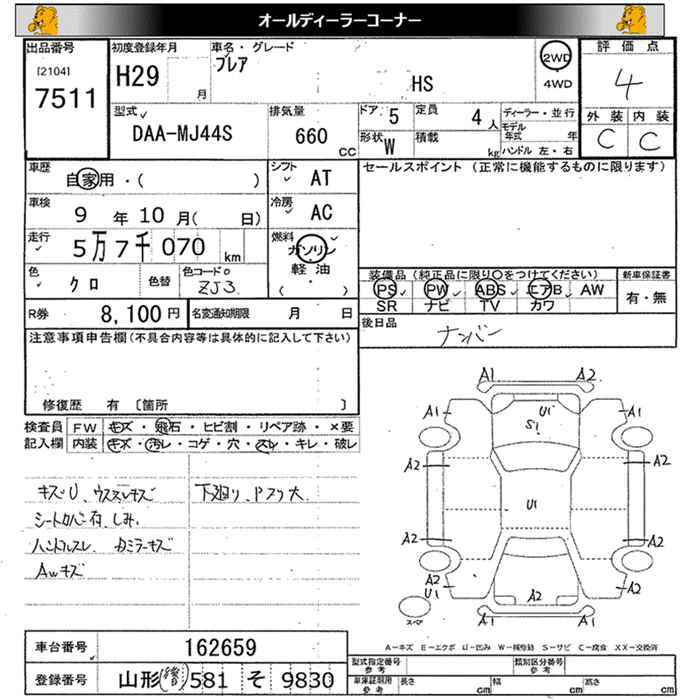 オールディーラーコーナー
出品番号
[2104]
7511
初度登録年月
H29
月
車名・グレード
フレア
HS
2WD
4WD
評価点
4
外装 内装
C C
型式
DAA-MJ44S
排気量
660
CC
ドア 5
定員 4 人
形状 W
積載
kg
ディーラー・並行
モデル年式 年
ハンドル 左・右
車歴
自家用・( )
シフト
AT
車検
9 年 10 月( 日)
冷房
AC
走行
5万7千070 km
燃料
ガソリン
軽油
( ・ )
色
クロ
色替
色コードNo
ZJ3
R券
8,100円
名変通知期限 月 日
セールスポイント (正常に機能するものに限ります)
装備品 (純正品に限り○をつけてください)
PS PW ABS エアB AW
SR ナビ TV カワ
新車保証書
有・無
後日品
ナンバー
注意事項申告欄(不具合内容等は具体的に記入して下さい)
修復歴 有 〔箇所 〕
検査員記入欄
FW キズ・飛石・ヒビ割・リペア跡・×要
内装 キズ・汚レ・コゲ・穴・スレ・キレ・破レ
キズU、ウススレキズ
シートカバー有、しみ
ハンドルスレ
Awキズ
下廻り、Pスリ大
A1 A2
A1 U1 A1
S1
A2 A2
U1
A2 A2
A2
U1
A2
A2
A1 A1
スペア
A-キズ E-エクボ U-凹み W-補修跡 S-サビ C-腐食 XX-交換済
車台番号
162659
登録番号
山形 581 そ 9830
型式指定番号
参考
類別区分番号
参考
車庫証明用
参考
長さ cm
幅 cm
高さ cm